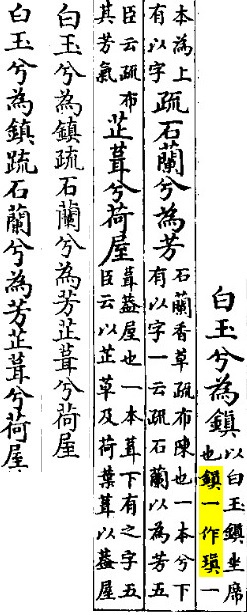 白玉兮為鎮以白玉鎮坐席也鎮一作瑱一
本為上有以字疏石蘭兮為芳石蘭香草疏布陳也一本兮下有以字一云疏石蘭以為芳五
臣云疏布其芳氣芷葺兮荷屋葺蓋屋也一本葺下有之字五臣云以芷草及荷葉葺以蓋屋
白玉兮為鎮疏石蘭兮為芳芷葺兮荷屋
白玉兮為鎮䟽石蘭兮為芳芷葺兮荷屋